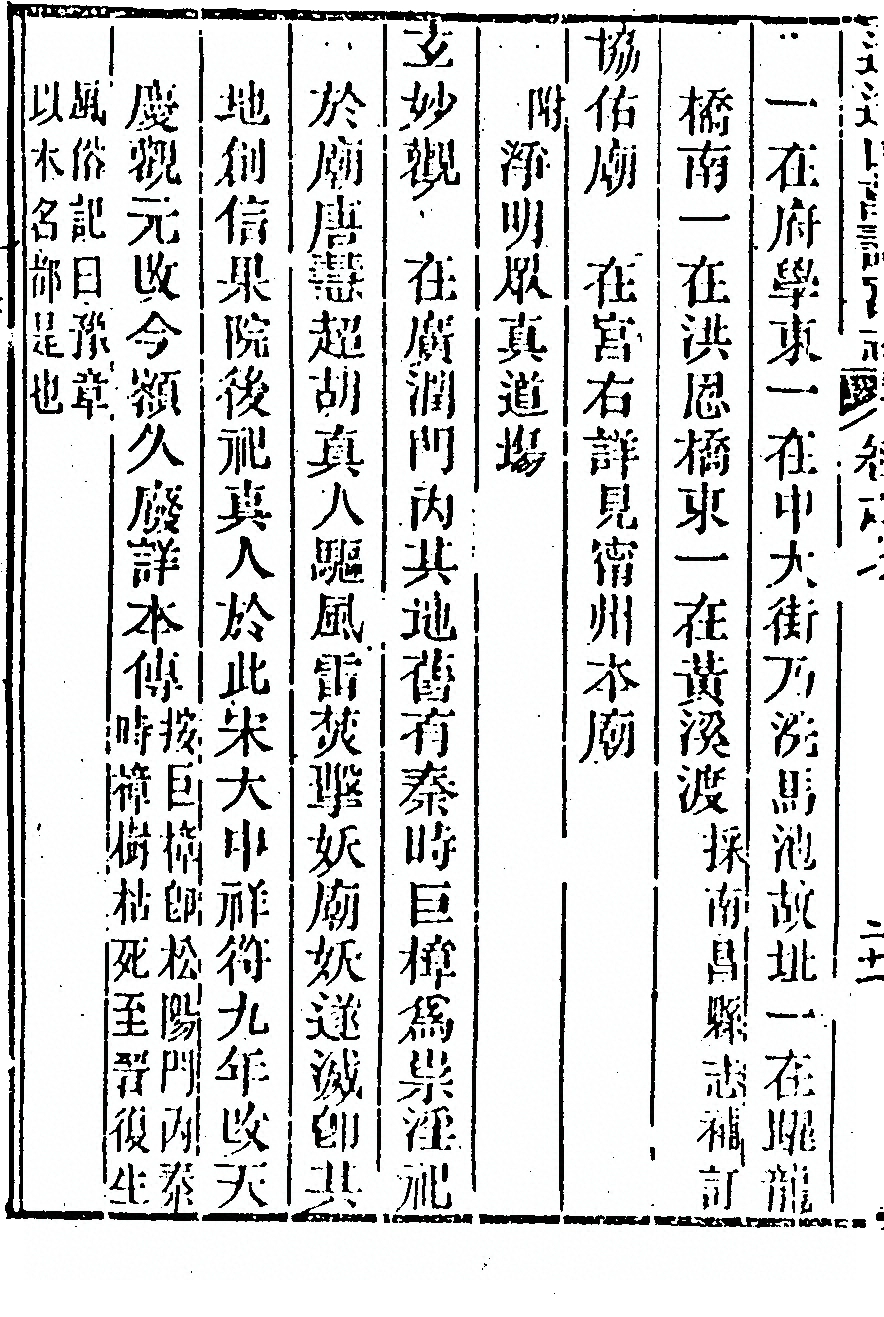 逍遙山萬壽宮志
二十一
一在府學東一在中大街乃洗馬池故址一在躍龍
橋南一在洪恩橋東一在黃溪渡採南昌縣志補訂
協佑廟　在宮右詳見甯州本廟
附淨明眾真道場
玄妙觀　在廣潤門內其地舊有秦時巨樟爲祟淫祀
於廟唐慧超胡真人驅風雷焚擊妖廟妖遂滅卽其
地創信果院後祀真人於此宋大中祥符九年改天
慶觀元改今額久廢詳本傳
按巨樟卽松陽門內秦
時樟樹枯死至晉復生
風俗記曰豫章
以木名郡是也